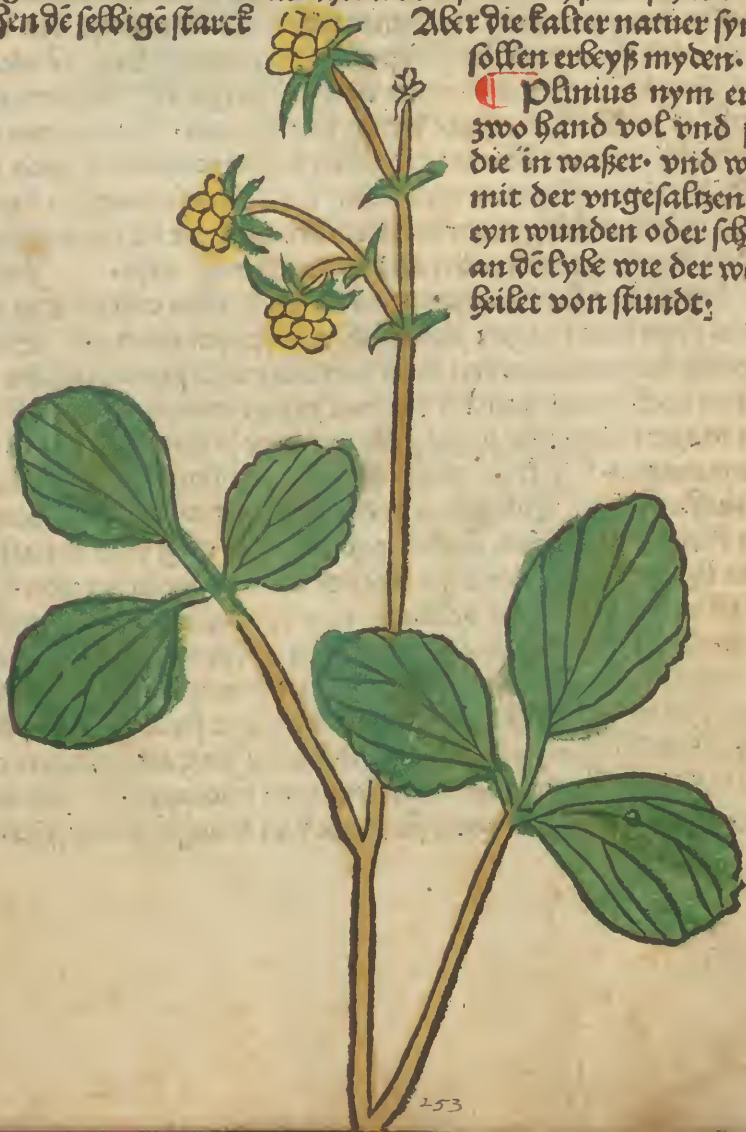 en dē selbigē starck
Aber die kalter natuer syn
sollen erbeyß myden.
Plinius nym er
zwo hand vol vnd
die in waßer. vnd w
mit der vngesaltzen
eyn wunden oder sch
an dē lybe wie der w
heilet von stundt:
253